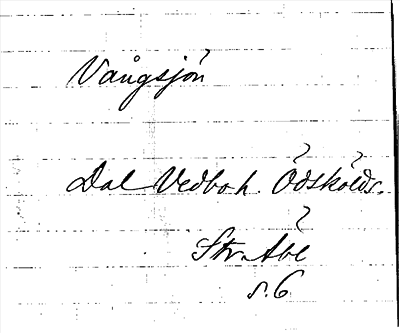 Vångsjön
Dal Vedbo h. Ödskölds s.
Str. Abl
s. 6